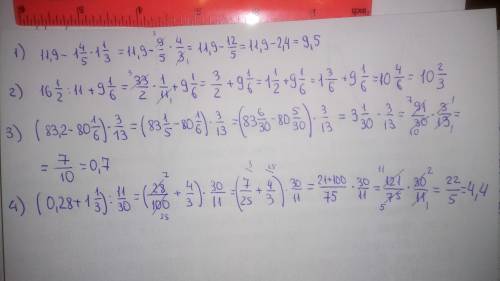 1) 11,9 - 1 4/5 · 1 1/3 = 11,9 - 9/5 · 4/3 = 11,9 - 12/5 = 11,9 - 2,4 = 9,5
2) 16 1/2 : 11 + 9 1/6 = 33/2 · 1/11 + 9 1/6 = 3/2 + 9 1/6 = 1 1/2 + 9 1/6 = 1 3/6 + 9 1/6 = 10 4/6 = 10 2/3
3) (83,2 - 80 1/6) · 3/13 = (83 1/5 - 80 1/6) · 3/13 = (83 6/30 - 80 5/30) · 3/13 = 3 1/30 · 3/13 = 91/30 · 3/13 =
= 7/10 = 0,7
4) (0,28 + 1 1/3) : 11/30 = (28/100 + 4/3) · 30/11 = (7/25 + 4/3) · 30/11 = 21+100/75 · 30/11 = 121/75 · 30/11 = 22/5 = 4,4